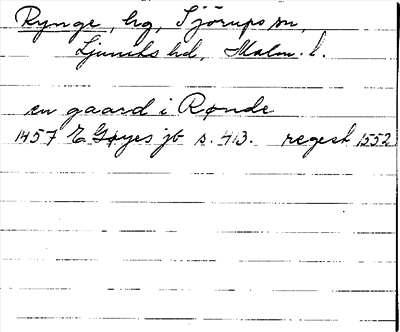 Rynge, hg, Sjörups sn,
Ljunits hd, Malm. l.
en gaard i Rønde
1457 E Gøyes jb s. 413. regest 1552